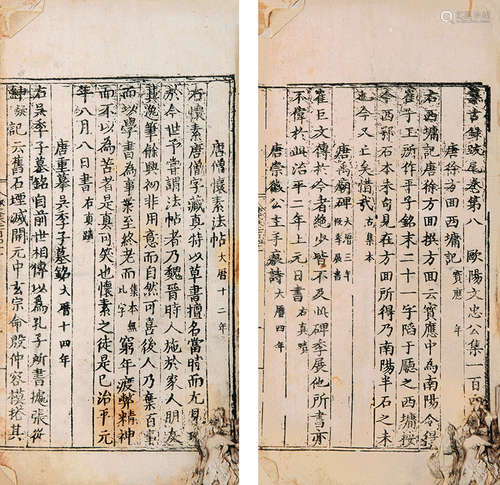 集古録跋尾卷第八 歐陽文忠公集一百四
唐徐方回西墉記 寶應 年
右西墉記唐徐方回撰方回云寶應中為南陽令得
崔子玉所作平子銘末二十一字陷于廳之西墉按
今西鄂石本末句見在方回所得乃南陽半石之末
也今又亡矣惜哉 右集本
唐禹廟碑 大曆三年 段季展書
崔巨文傳於今者絶少皆不及此碑季展他所書亦
不傳於世治平二年上元日書 右真蹟
唐崇徽公主手痕詩 大曆四年
唐僧懷素法帖 大曆十二年
右懷素唐僧字藏真特以草書擅名當時而尤見
於今世予嘗謂法帖者乃魏晉時人施於家人朋友
其逸筆餘興初非用意而自然可喜後人乃棄百事
而以學書為事業至終老而 集本無此字 窮年疲弊精神
而不以為苦者是真可笑也懷素之徒是已治平元
年八月八日書 右真蹟
唐重摹吳季子墓銘 大曆十四年
右吳季子墓銘自前世相傳以為孔子所書據張從
紳 記云舊石堙滅開元中玄宗命殷仲容摸搨其